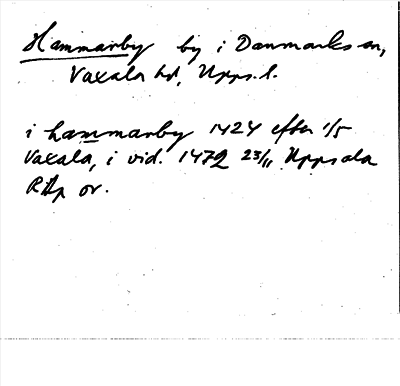 Hammarby by i Danmarks sn,
Vaxala hd, Upps.l.
i hammarby 1424 efter 1/5
Vaxala, i vid. 1472 23/11 Uppsala
RAp or.